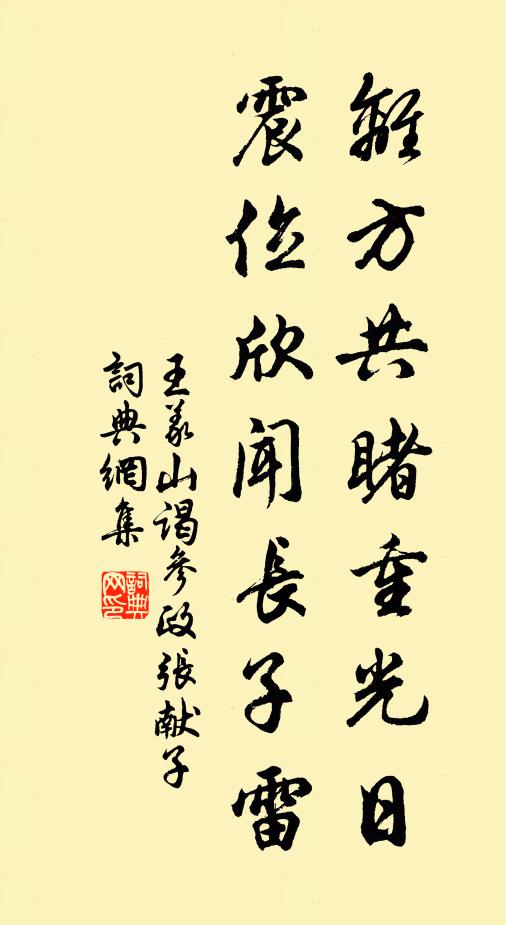 離方共睹重光日
震位欣聞長子雷
王義山謁參政張献子
詞典網集
詞典网印